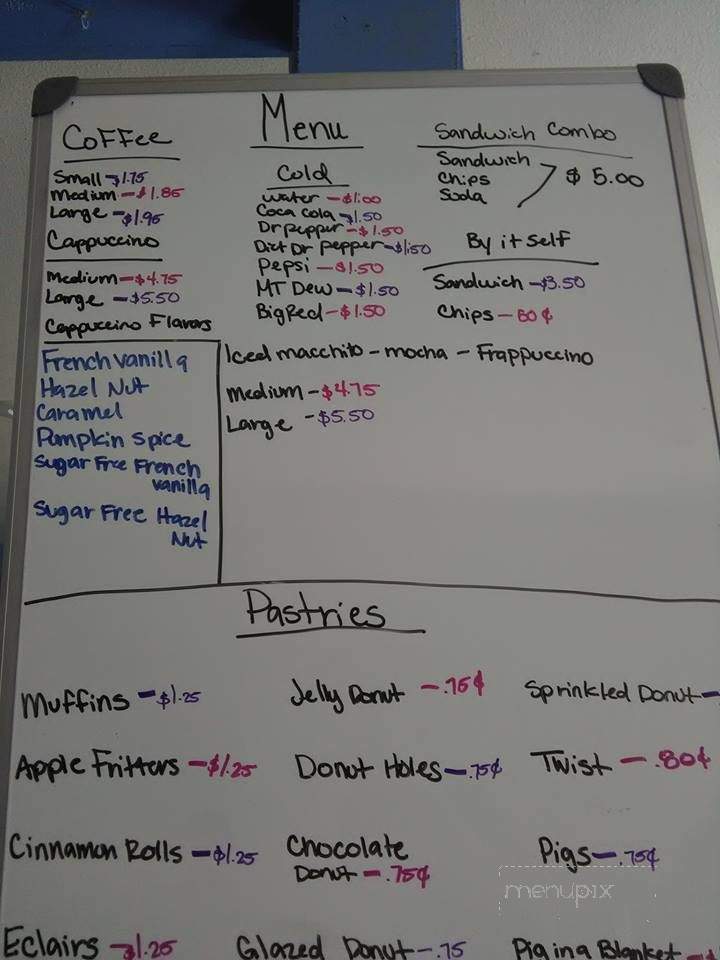 Menu
Coffee
Small - $1.75
Medium - $1.85
Large - $1.95
Cappuccino
Medium - $4.75
Large - $5.50
Cappuccino Flavors
French vanilla
Hazel Nut
Caramel
Pumpkin Spice
Sugar Free French
vanilla
Sugar Free Hazel
Nut
Cold
Water - $1.00
Coca Cola - $1.50
Dr pepper - $1.50
Dict Dr pepper - $1.50
Pepsi - $1.50
MT Dew - $1.50
Big Red - $1.50
Sandwich Combo
Sandwich
Chips
Soda
$ 5.00
By it self
Sandwich - $3.50
Chips - 60¢
Iced macchito - mocha - Frappuccino
Medium - $4.75
Large - $5.50
Pastries
Muffins - $1.25
Jelly Donut - .75¢
Sprinkled Donut -
Apple Fritters - $1.25
Donut Holes - .75¢
Twist - .80¢
Cinnamon Rolls - $1.25
Chocolate
Donut - .75¢
Pigs - .75¢
menupix
Eclairs - $1.25
Glazed Donut - .75
Pig in a Blanket -